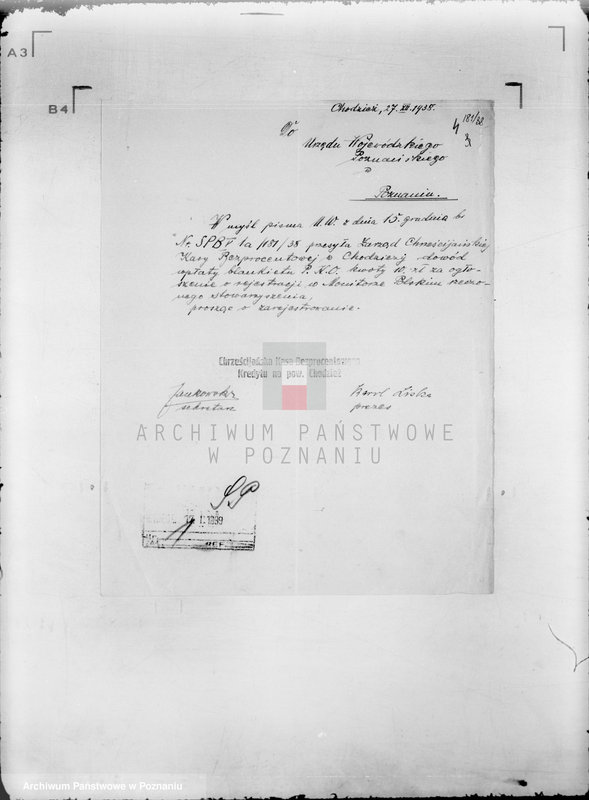 A3
B4
Chodzież, 27.XII.1938.
181/38
Do
Urzędu Wojewódzkiego
Poznańskiego
Poznaniu.
W myśl pisma U.W. z dnia 15. grudnia b
Nr. SPBF 1a/181/38 przesyła Zarząd Chrześcijańskiej
Kasy Bezprocentowej w Chodzieży dowód
wpłaty blankietu P.K.O. kwoty 10, zł za ogło-
szenie o rejestracji w Monitorze Polskim rzeczo-
nego stowarzyszenia,
prosząc o zarejestrowanie.
Chrześcijańska Kasa Bezprocentowego
Kredytu na pow. Chodzież
sekretarz
Karol Liska
prezes
ARCHIWUM PAŃSTWOWE
W POZNANIU
SP
I.1939
Archiwum Państwowe w Poznaniu